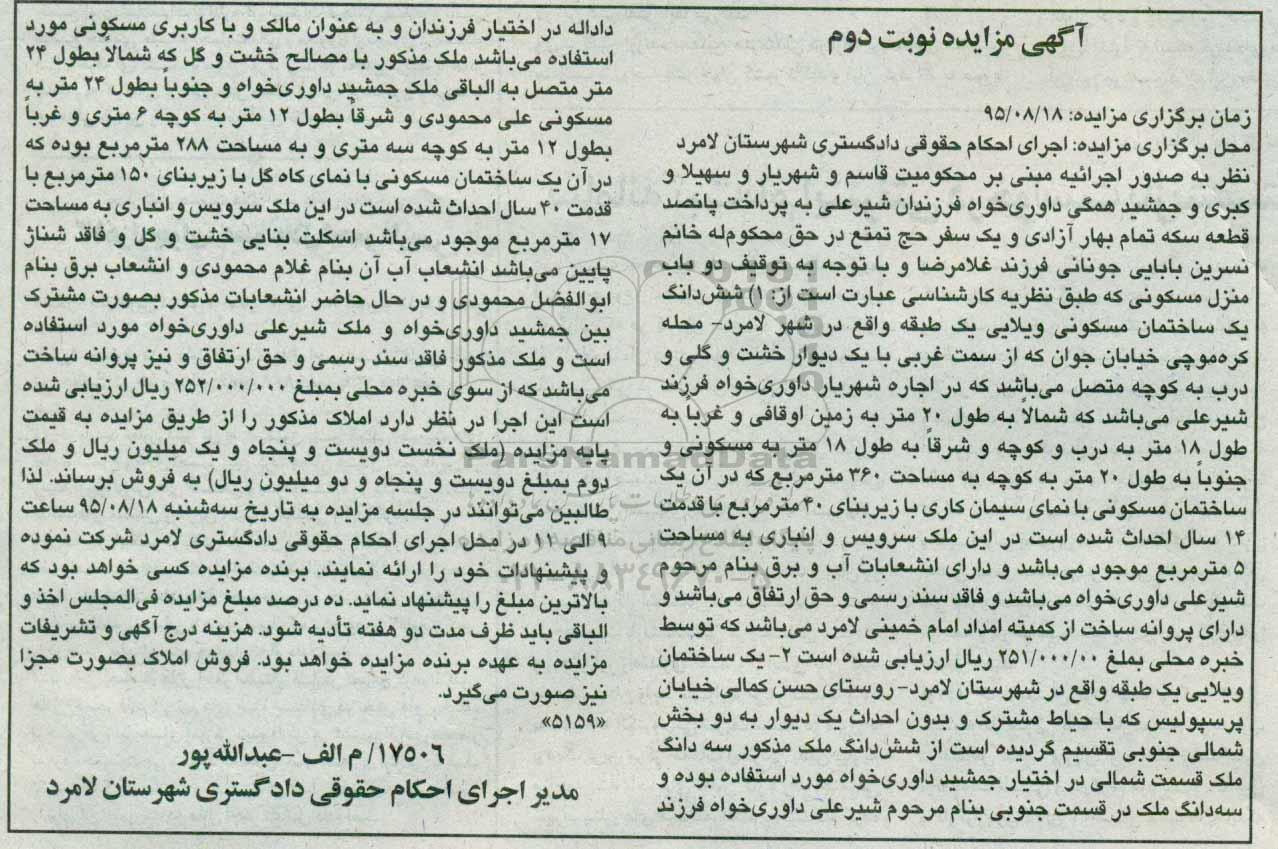 آگهی مزایده نوبت دوم
زمان برگزاری مزایده: ۹۵/۰۸/۱۸
محل برگزاری مزایده: اجرای احکام حقوقی دادگستری شهرستان لامرد
نظر به صدور اجرائیه مبنی بر محکومیت قاسم و شهریار و سهیلا و
کبری و جمشید همگی داوری‌خواه فرزندان شیرعلی به پرداخت پانصد
قطعه سکه تمام بهار آزادی و یک سفر حج تمتع در حق محکوم‌له خانم
نسرین بابایی جونانی فرزند غلامرضا و با توجه به توقیف دو باب
منزل مسکونی که طبق نظریه کارشناسی عبارت است از: ۱) شش‌دانگ
یک ساختمان مسکونی ویلایی یک طبقه واقع در شهر لامرد- محله
کره‌موچی خیابان جوان که از سمت غربی با یک دیوار خشت و گلی و
درب به کوچه متصل می‌باشد که در اجاره شهریار داوری‌خواه فرزند
شیرعلی می‌باشد که شمالاً به طول ۲۰ متر به زمین اوقافی و غرباً به
طول ۱۸ متر به درب و کوچه و شرقاً به طول ۱۸ متر به مسکونی و
جنوباً به طول ۲۰ متر به کوچه به مساحت ۳۶۰ مترمربع که در آن یک
ساختمان مسکونی با نمای سیمان کاری با زیربنای ۴۰ مترمربع با قدمت
۱۴ سال احداث شده است در این ملک سرویس و انباری به مساحت
۵ مترمربع موجود می‌باشد و دارای انشعابات آب و برق بنام مرحوم
شیرعلی داوری‌خواه می‌باشد و فاقد سند رسمی و حق ارتفاق می‌باشد و
دارای پروانه ساخت از کمیته امداد امام خمینی لامرد می‌باشد که توسط
خبره محلی بملغ ۲۵۱/۰۰۰/۰۰ ریال ارزیابی شده است ۲- یک ساختمان
ویلایی یک طبقه واقع در شهرستان لامرد- روستای حسن کمالی خیابان
پرسپولیس که با حیاط مشترک و بدون احداث یک دیوار به دو بخش
شمالی جنوبی تقسیم گردیده است از شش‌دانگ ملک مذکور سه دانگ
ملک قسمت شمالی در اختیار جمشید داوری‌خواه مورد استفاده بوده و
سه‌دانگ ملک در قسمت جنوبی بنام مرحوم شیرعلی داوری‌خواه فرزند
داداله در اختیار فرزندان و به عنوان مالک و با کاربری مسکونی مورد
استفاده می‌باشد ملک مذکور با مصالح خشت و گل که شمالاً بطول ۲۴
متر متصل به الباقی ملک جمشید داوری‌خواه و جنوباً بطول ۲۴ متر به
مسکونی علی محمودی و شرقاً بطول ۱۲ متر به کوچه ۶ متری و غرباً
بطول ۱۲ متر به کوچه سه متری و به مساحت ۲۸۸ مترمربع بوده که
در آن یک ساختمان مسکونی با نمای کاه گل با زیربنای ۱۵۰ مترمربع با
قدمت ۴۰ سال احداث شده است در این ملک سرویس و انباری به مساحت
۱۷ مترمربع موجود می‌باشد اسکلت بنایی خشت و گل و فاقد شناژ
پایین می‌باشد انشعاب آب آن بنام غلام محمودی و انشعاب برق بنام
ابوالفضل محمودی و در حال حاضر انشعابات مذکور بصورت مشترک
بین جمشید داوری‌خواه و ملک شیرعلی داوری‌خواه مورد استفاده
است و ملک مذکور فاقد سند رسمی و حق ارتفاق و نیز پروانه ساخت
می‌باشد که از سوی خبره محلی بمبلغ ۲۵۲/۰۰۰/۰۰۰ ریال ارزیابی شده
است این اجرا در نظر دارد املاک مذکور را از طریق مزایده به قیمت
پایه مزایده (ملک نخست دویست و پنجاه و یک میلیون ریال و ملک
دوم بمبلغ دویست و پنجاه و دو میلیون ریال) به فروش برساند. لذا
طالبین می‌توانند در جلسه مزایده به تاریخ سه‌شنبه ۹۵/۰۸/۱۸ ساعت
۹ الی ۱۱ در محل اجرای احکام حقوقی دادگستری لامرد شرکت نموده
و پیشنهادات خود را ارائه نمایند. برنده مزایده کسی خواهد بود که
بالاترین مبلغ را پیشنهاد نماید. ده درصد مبلغ مزایده فی‌المجلس اخذ و
الباقی باید ظرف مدت دو هفته تأدیه شود. هزینه درج آگهی و تشریفات
مزایده به عهده برنده مزایده خواهد بود. فروش املاک بصورت مجزا
نیز صورت می‌گیرد.
«۵۱۵۹»
۱۷۵۰۶/ م الف -عبدالله‌پور
مدیر اجرای احکام حقوقی دادگستری شهرستان لامرد
ParsNamadData